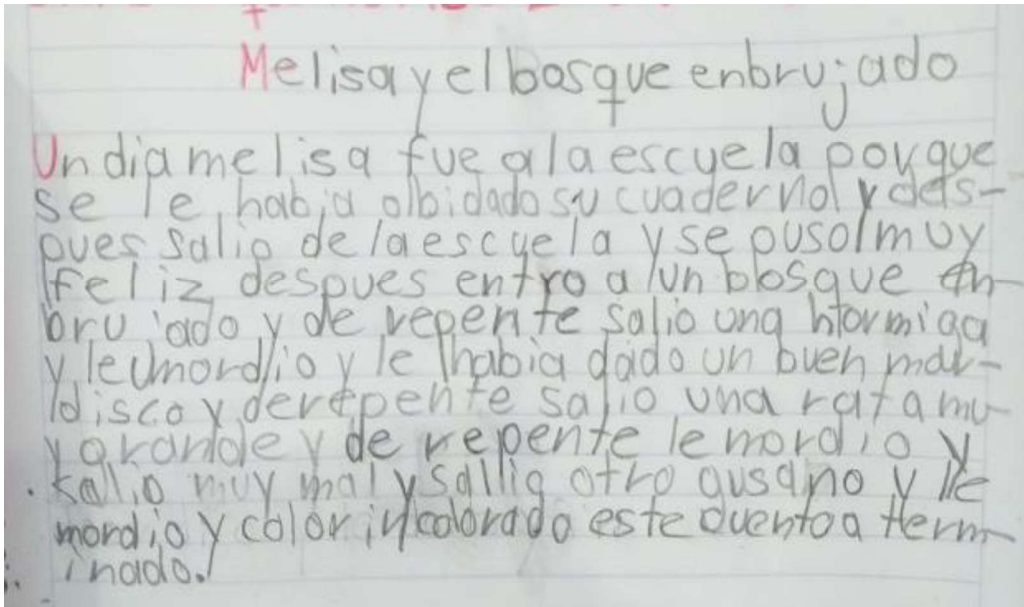 Melisa y el bosque enbrujado
Un dia melisa fue a la escuela porque
se le habia olbidado su cuaderno y des-
pues salio de la escuela y se puso muy
feliz despues entro a un bosque en-
brujado y de repente salio una hormiga
y le mordio y le habia dado un buen mar-
disco y derepente salio una rata mu-
y grande y de repente le mordio y
salio muy mal y sallia otro gusano y le
mordio y color in colorado este cuento a term-
inado.